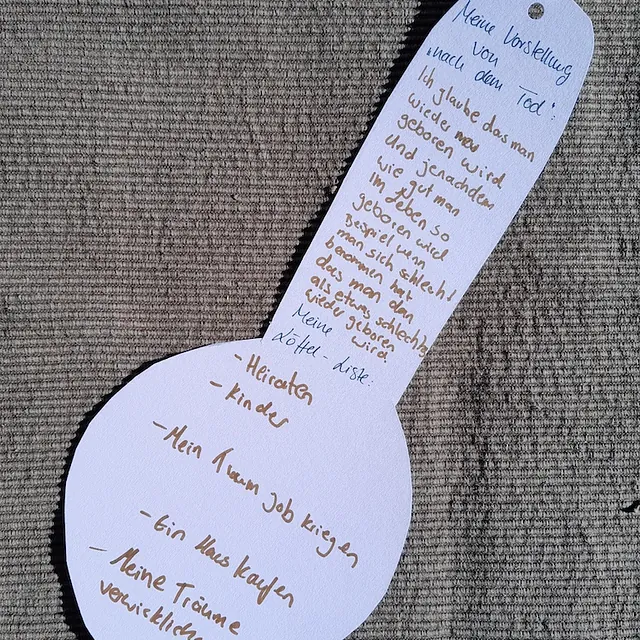 Meine Vorstellung
von
"nach dem Tod":
Ich glaube das man
wieder neu
geboren wird
Und jenachdem
wie gut man
im Leben so
geboren wird
Bespiel wenn
man sich schlecht
benommen hat
das man dan
als etwas schlechtes
wieder geboren
wird.
Meine
Löffel-Liste:
- Heiraten
- Kinder
- Mein Traum job kriegen
- Ein Haus kaufen
- Meine Träume
verwirklichen